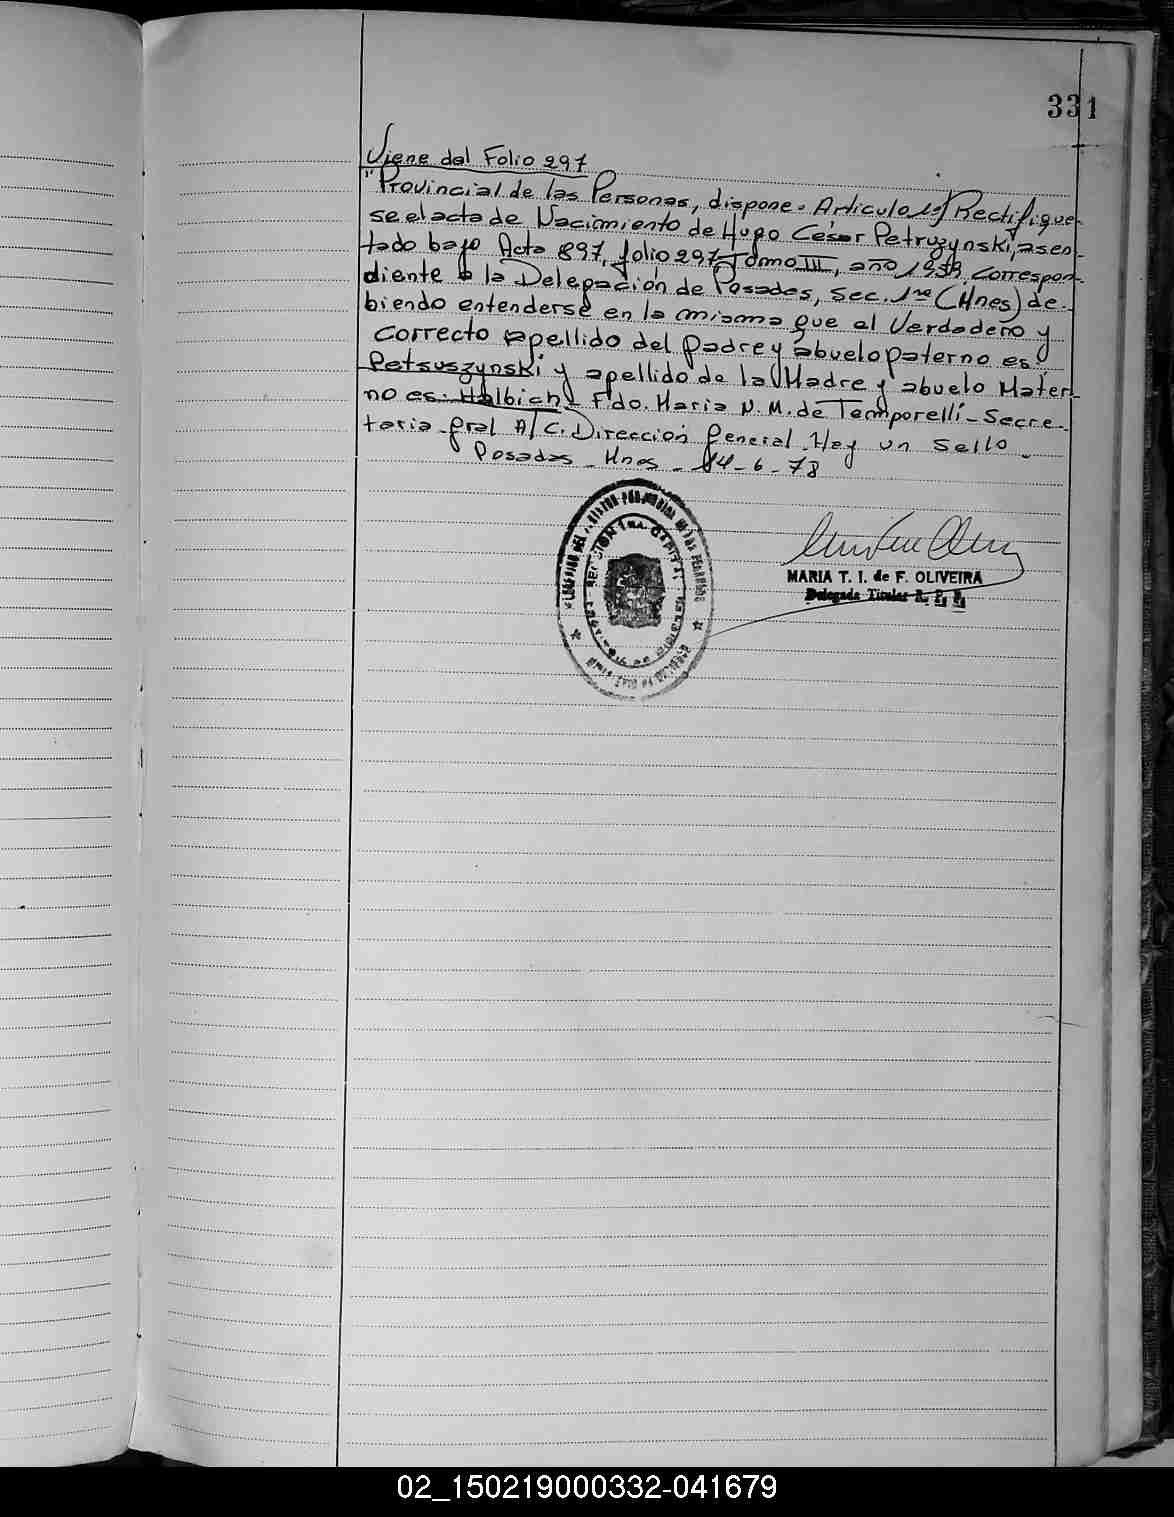 331
Viene del Folio 297
"Provincial de las Personas, dispone. Articulo 1º) Rectifique
se el acta de Nacimiento de Hugo César Petruzynski, asen-
tado bajo Acta 897, folio 297, Tomo III, año 1959 correspon-
diente a la Delegación de Posadas, Sec. 1ra (Mnes) de-
biendo entenderse en la misma que el Verdadero y
correcto apellido del padre y abuelo paterno es:
Petsuszynski y apellido de la Madre y abuelo Mater-
no es: Halbich. Fdo. Maria N. M. de Temporelli - Secre-
taria gral A/C. Dirección General. Hay un Sello.
Posadas - Mnes - 14-6-78
MARIA T. I. de F. OLIVEIRA
Delegada Titular R. P. P.
02_150219000332-041679